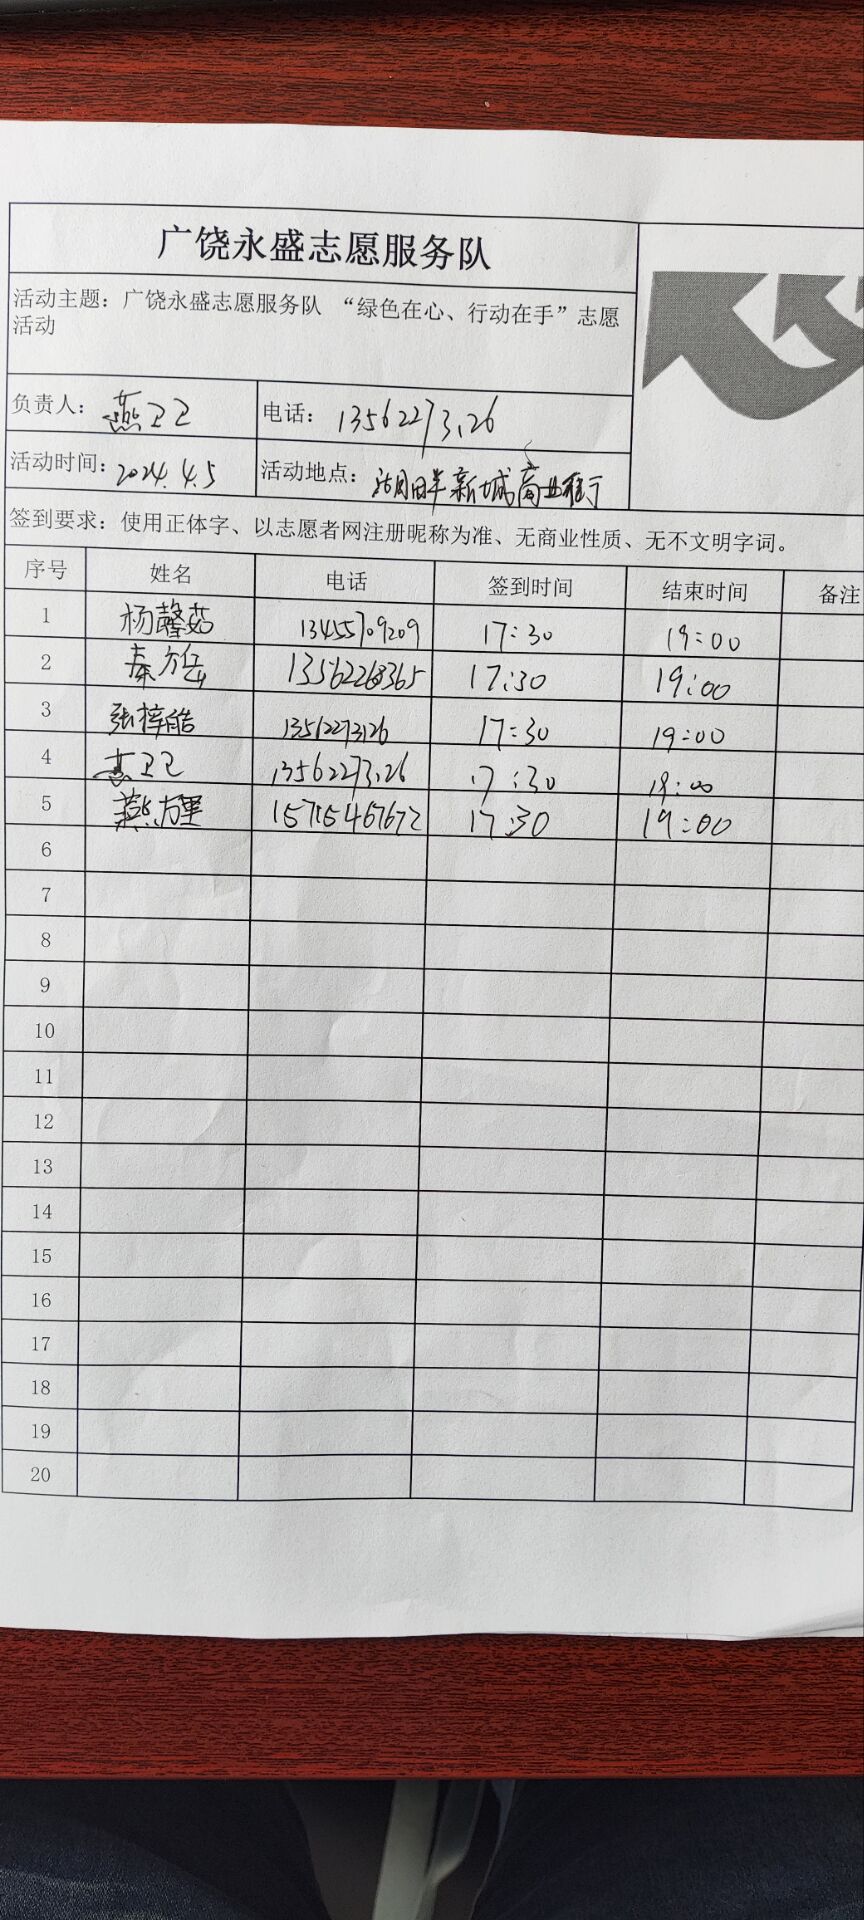 广饶永盛志愿服务队
活动主题：广饶永盛志愿服务队 “绿色在心、行动在手”志愿
活动
负责人： 燕卫卫 电话： 13562273126
活动时间： 2024.4.5 活动地点： 新城商业街
签到要求：使用正体字、以志愿者网注册昵称为准、无商业性质、无不文明字词。
序号 姓名 电话 签到时间 结束时间 备注
1 杨馨茹 13455709209 17:30 19:00
2 秦万岳 13562268365 17:30 19:00
3 张梓皓 13562273126 17:30 19:00
4 燕卫卫 13562273126 17:30 19:00
5 燕万里 15715467672 17:30 19:00
6
7
8
9
10
11
12
13
14
15
16
17
18
19
20